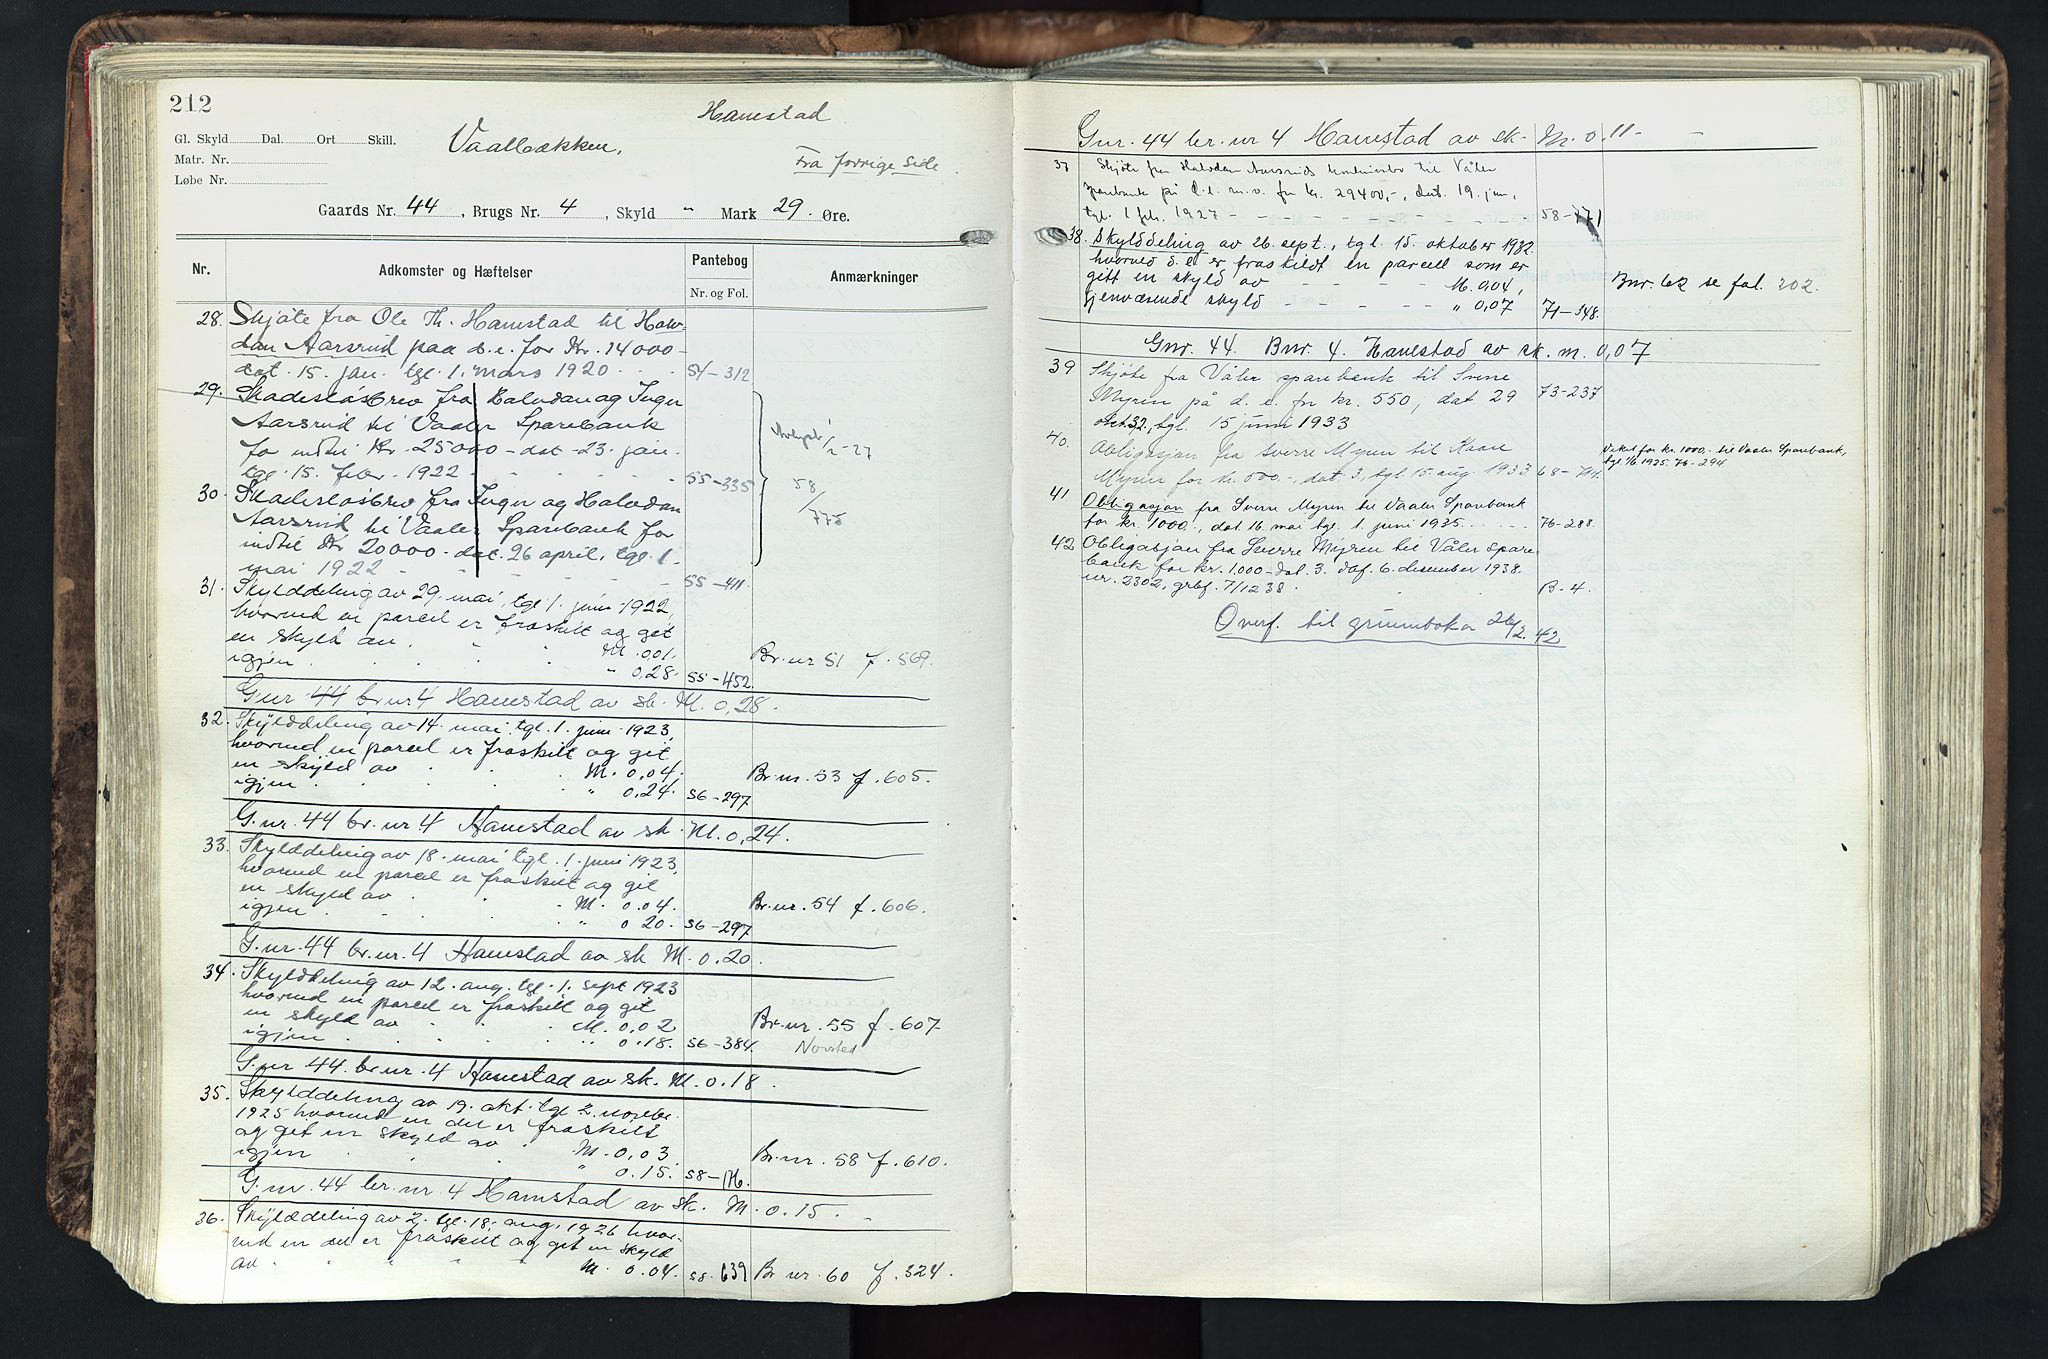 212
Hanestad
Gl. Skyld Dal. Ort Skill.
Vaalbækken,
Matr. Nr.
Fra forrige side
Løbe Nr.
Gaards Nr. 44, Brugs Nr. 4, Skyld " Mark 29 Øre.
Nr. Adkomster og Hæftelser Pantebog Nr. og Fol. Anmærkninger
28. Skjøte fra Ole Th. Hanestad til Halv-
dan Aarsrud paa d.e. for Kr. 14000 -
dat. 15. jan. tgl. 1. mars 1920 . . . 54-312
29. Skadesløsbrev fra Halvdan og Inger
Aarsrud til Vaaler Sparebank
for indtil Kr. 25000 - dat. 23. jan.
tgl. 15. febr. 1922 55-335
Avlyst 1/2-27
58/775
30. Skadesløsbrev fra Inger og Halvdan
Aarsrud til Vaaler Sparebank for
indtil Kr 20000 - dat. 26 april, tgl. 1.
mai 1922 - - - - - 55-411
31. Skylddeling av 29. mai, tgl. 1. juni 1922,
hvorved en parcel er fraskilt og git
en skyld av. M. 0,01.
igjen . . . " 0,28. 55-452. Br.nr 51 f. 569.
Gnr 44 br.nr 4 Hanestad av sk. M. 0,28.
32. Skylddeling av 14. mai tgl. 1. juni 1923,
hvorved en parcel er fraskilt og git
en skyld av . . . M. 0,04.
igjen . . . " 0,24. 56-297 Br.nr. 53 f. 605.
G.nr. 44 br.nr 4 Hanestad av sk. M. 0,24.
33. Skylddeling av 18. mai tgl. 1. juni 1923,
hvorved en parcel er fraskilt og git
en skyld av . . . M. 0.04.
igjen . . . " 0 20. 56-297 Br.nr. 54 f. 606.
G.nr. 44 br.nr. 4 Hanestad av sk M. 0.20.
34. Skylddeling av 12. aug. tgl. 1. sept 1923
hvorved en parcel er fraskilt og git
en skyld av . . . M. 0,02
igjen . . . " 0.18. 56-384. Br.nr. 55 f. 607
Norsted
G.nr 44. br.nr. 4 Hanestad av sk. M. 0.18.
35. Skylddeling av 19. okt. tgl 2. novebr.
1925 hvorved en del er fraskilt
og git en skyld av M. 0,03
igjen . . . " 0.15. 58-176. Br.nr. 58 f. 610.
G.nr. 44 br.nr. 4 Hanestad av sk. M. 0.15. -
36. Skylddeling av 2. tgl. 18. aug. 1926 hvor-
ved en del er fraskilt og git en skyld
av. " " " M. 0.04. 58.639 Br nr. 60 f. 324.
Gnr. 44 br. nr 4 Hanestad av sk- M. 0.11-
37 Skjøte fra Halvdan Aarsruds konkursbo til Våler
Sparebank på d.e. m.v. for kr. 29400,-, dat. 19. jan,
tgl. 1 feb. 1927 - - - - - 58-771
38. Skylddeling av 26. sept., tgl. 15. oktober 1932
hvorved d.e. er fraskildt en parcell som er
gitt en skyld av - - - M. 0,04,
gjenværende skyld - - - " 0,07 71-348. Bnr. 62 se fol. 202.
Gnr. 44. Bnr. 4. Hanestad av sk. m. 0,07
39 Skjøte fra Våler sparebank til Sverre
Myren på d. e. for kr. 550, dat 29 73-237
okt. 32, tgl. 15 juni 1933
40. Obligasjon fra Sverre Myren til Kaare
Myren for kr. 500.-, dat. 3, tgl. 15. aug. 1933 68-714.
Veket for kr. 1000,- til Vaaler Sparebank,
tgl. 1/6 1935. 76-294
41 Obligasjon fra Sverre Myren til Vaaler Sparebank
for kr. 1000., dat. 16. mai tgl. 1 juni 1935. . . . 76-288.
42 Obligasjon fra Sverre Myren til Våler spare-
bank for kr. 1.000 - dat. 3. daf. 6. desember 1938.
nr. 2302, grbf. 7/12 38. B. 4.
Overf. til grunnboka 26/2. 42